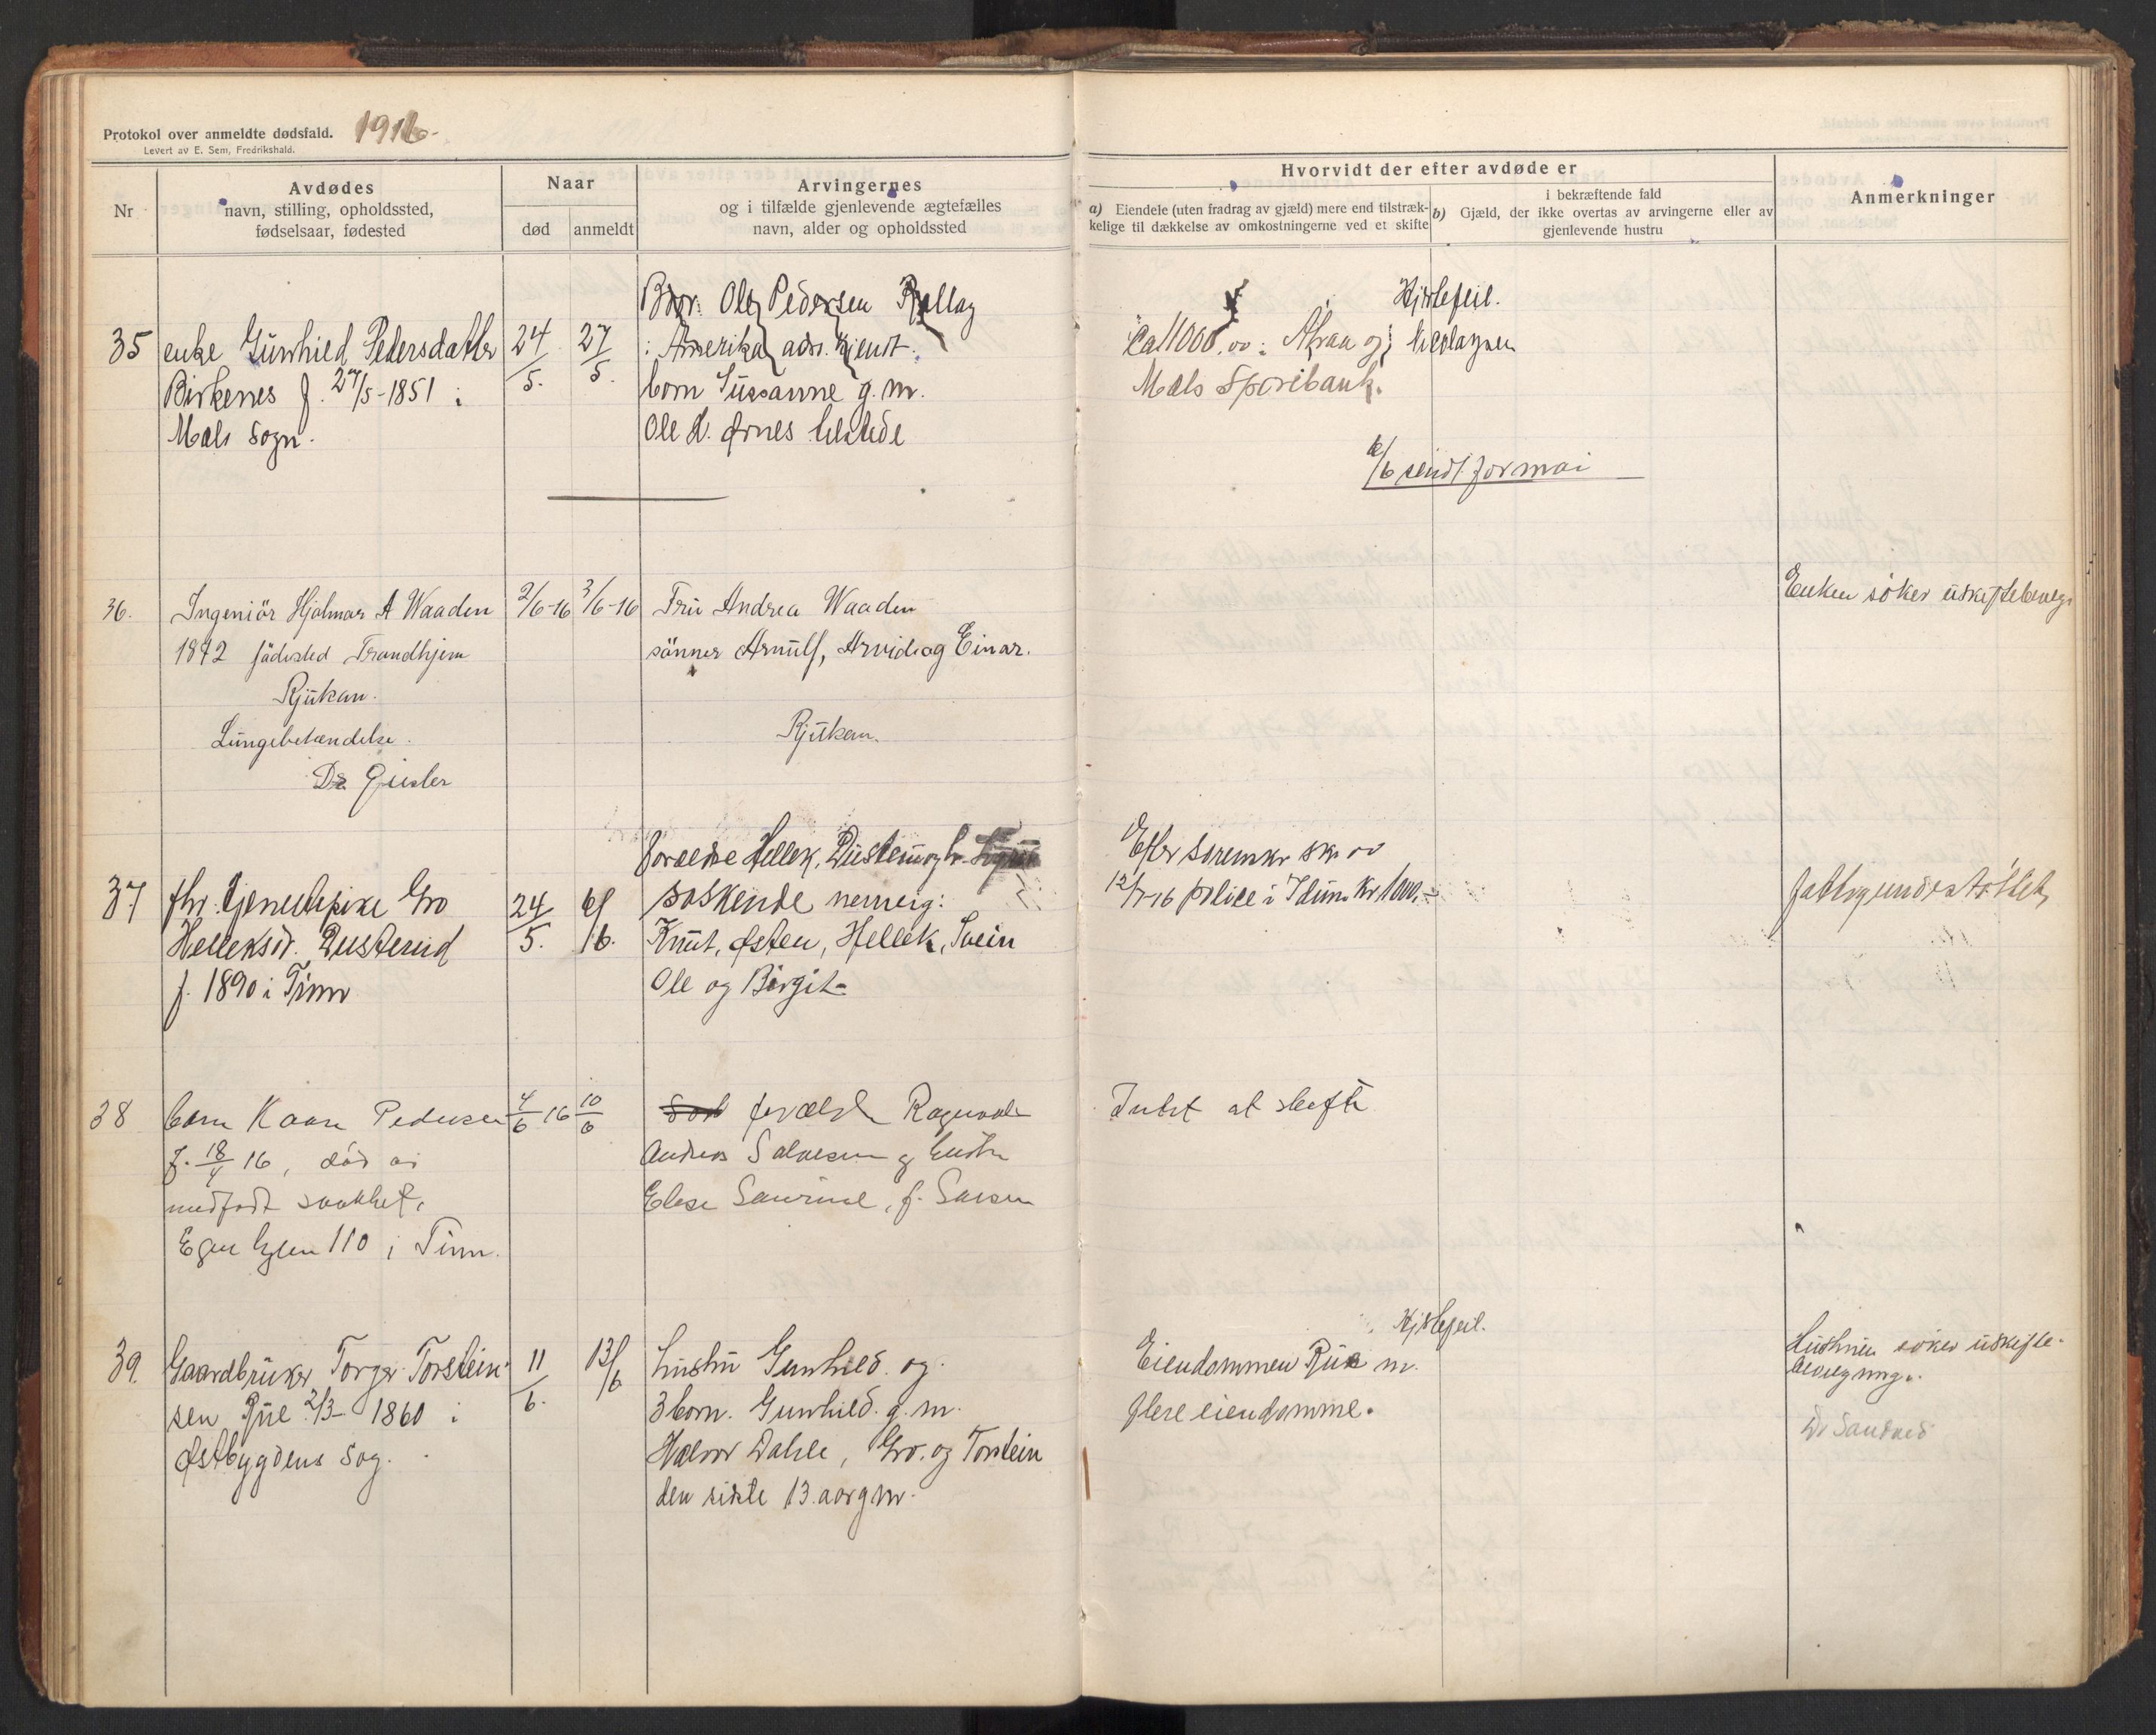 Protokol over anmeldte dødsfald. 1916
Levert av E. Sem, Fredrikshald.
Nr
Avdødes
navn, stilling, opholdssted,
fødselsaar, fødested
Naar
død
anmeldt
Arvingernes
og i tilfælde gjenlevende ægtefælles
navn, alder og opholdssted
Hvorvidt der efter avdøde er
a) Eiendele (uten fradrag av gjæld) mere end tilstræk-
kelige til dækkelse av omkostningerne ved et skifte
i bekræftende fald
b) Gjæld, der ikke overtas av arvingerne eller av
gjenlevende hustru
Anmerkninger
35 enke Gunhild Pedersdatter
Birkenes f. 27/5-1851 i
Mæls Sogn.
24/5.
27/5.
Bror: Ole Pedersen Rollag
i Amerika adr. kjendt.
born Sussanne g.m.
Ole H. Ørnes tilstede
Hjertefeil.
Ca 11000.00 i Atraa og
Mæls Sparebank.
6/6 sendt formoi
36. Ingeniör Hjalmar A Waaden
1872 födested Trondhjem
Rjukan.
Lungebetændelse.
Dr
2/6-16
3/6-16
Fru Andrea Waaden
sönner Arnulf, Arvid og Einar.
Rjukan.
Enken söker uskiftebevilg.
37 fhv. tjenestepike Gro
Helleksd. Busterud
f. 1890 i Tinn
24/5.
forældre Hellek
søskende nemlig:
Knut, Østen, Hellek, Svein
Ole og Birgit
Efter
12/7-16 police i Idun. Kr 1000.-
fattigunderstöttet
38 barn Kaare Pedersen
f. 18/4 16, død av
medfødt svakhet,
i Tinn.
4/6 16
10/6
forældre Ragnvald
Andreas Salvesen og hustru
Elise Laurine, f. Larsen
Intet at skifte
39. Gaardbruker Torger Torstein-
sen Rue 2/3- 1860 i
Østbygdens Sog.
11/6.
13/6
hustru Gunhild og
3 born. Gunhild g.m.
Halvor Dahle, Gro. og Torstein
den siste 13 aar gm.
Hjertefeil.
Eiendommen Rue m.
flere eiendomme.
Hustruen söker uskifte-
bevilgning.
Dr Sandnes